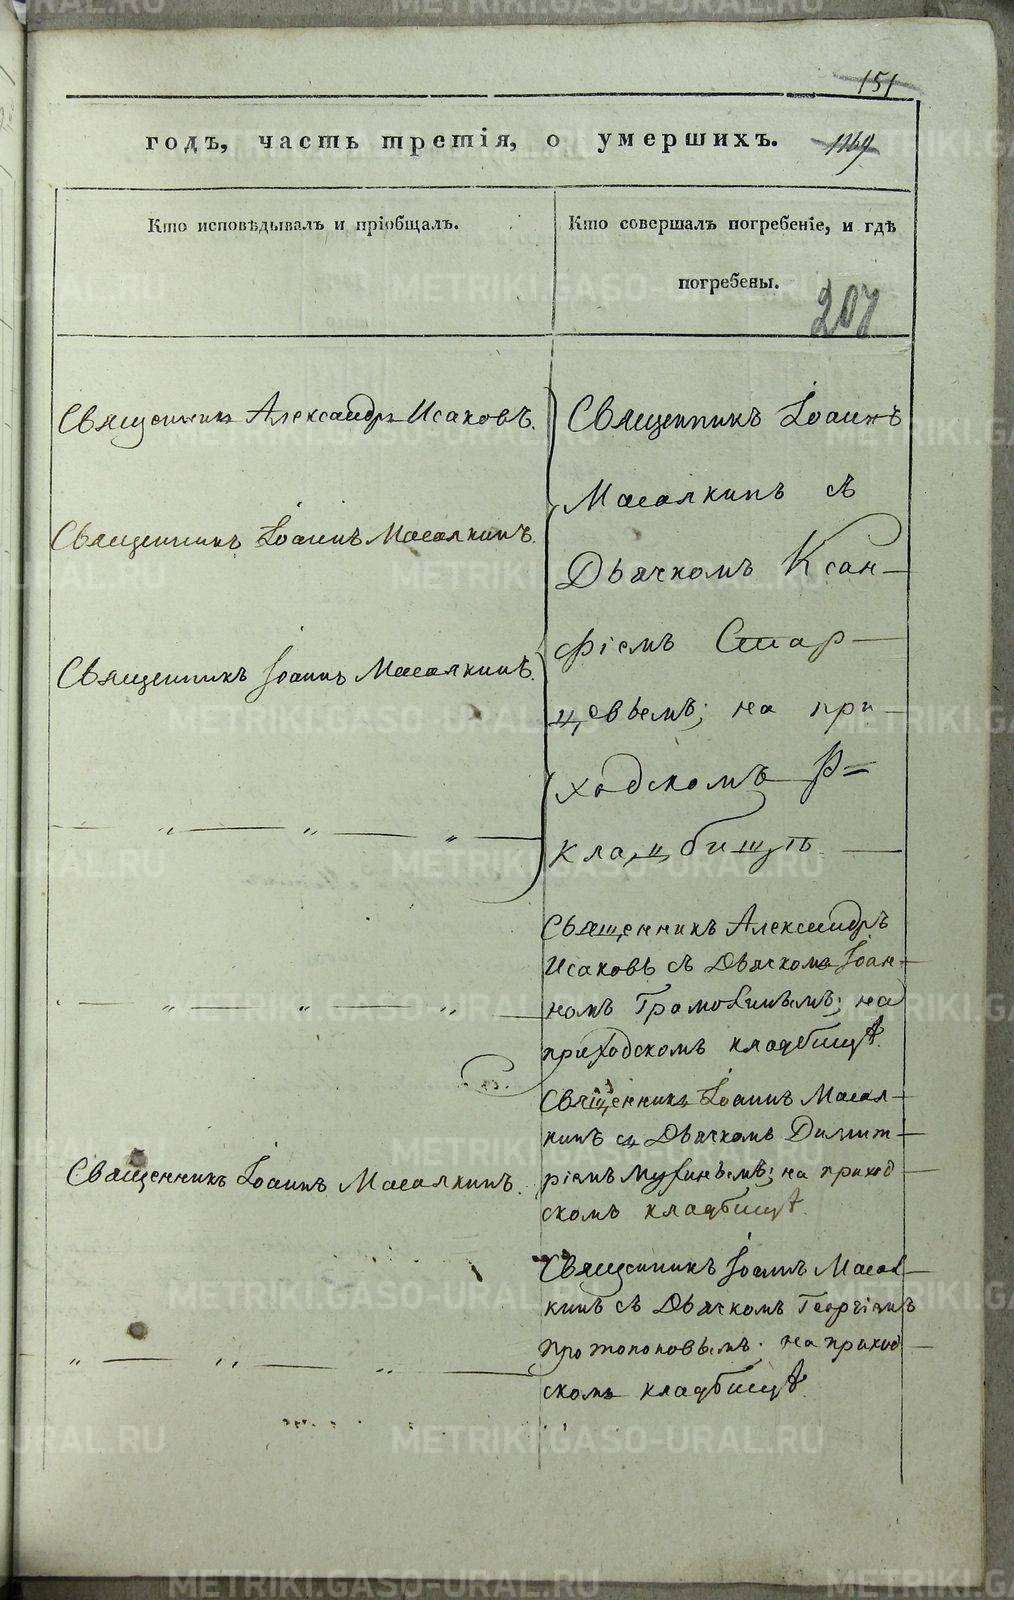 151
годъ, часть третія, о умершихъ.
1169
Кто исповѣдывалъ и пріобщалъ.
Кто совершалъ погребеніе, и гдѣ
погребены.
207
Священникъ Александръ Исаковъ.
Священникъ Іоаннъ Масалкинъ.
Священникъ Іоаннъ Масалкинъ.
Священникъ Іоаннъ
Масалкинъ съ
Дьячкомъ Ксан-
фіемъ Стар-
цовымъ; на при-
ходскомъ
кладбищѣ.
Священникъ Александръ
Исаковъ съ Дьячкомъ Іоан-
номъ на
приходскомъ кладбищѣ.
Священникъ Іоаннъ Масалкинъ.
Священникъ Іоаннъ Масал-
кинъ съ Дьячкомъ Димит-
ріемъ на приход-
скомъ кладбищѣ.
Священникъ Іоаннъ Масал-
кинъ съ Дьячкомъ Георгіемъ
Протопоповымъ; на приход-
скомъ кладбищѣ.
METRIKI.GASO-URAL.RU